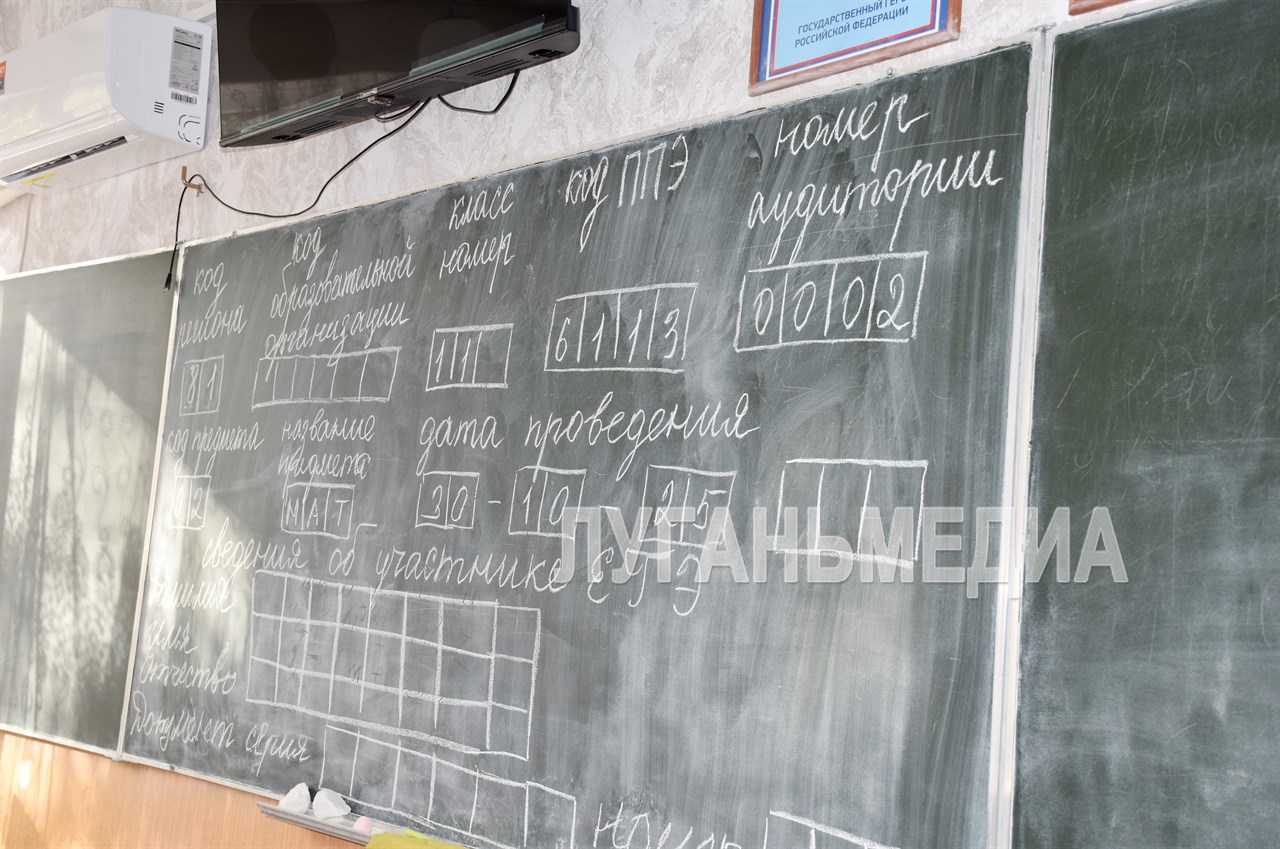 ГОСУДАРСТВЕННЫЙ ГЕР
РОССИЙСКОЙ ФЕДЕРАЦИИ
код региона
81
код образовательной организации
класс номер
11
код ППЭ
6113
номер аудитории
0002
код предмета
02
название предмета
МАТ
дата проведения
30-10-25
сведения об участнике ЕГЭ
Фамилия
Имя
Отчество
Документ серия
ЛУГАНЬМЕДИА